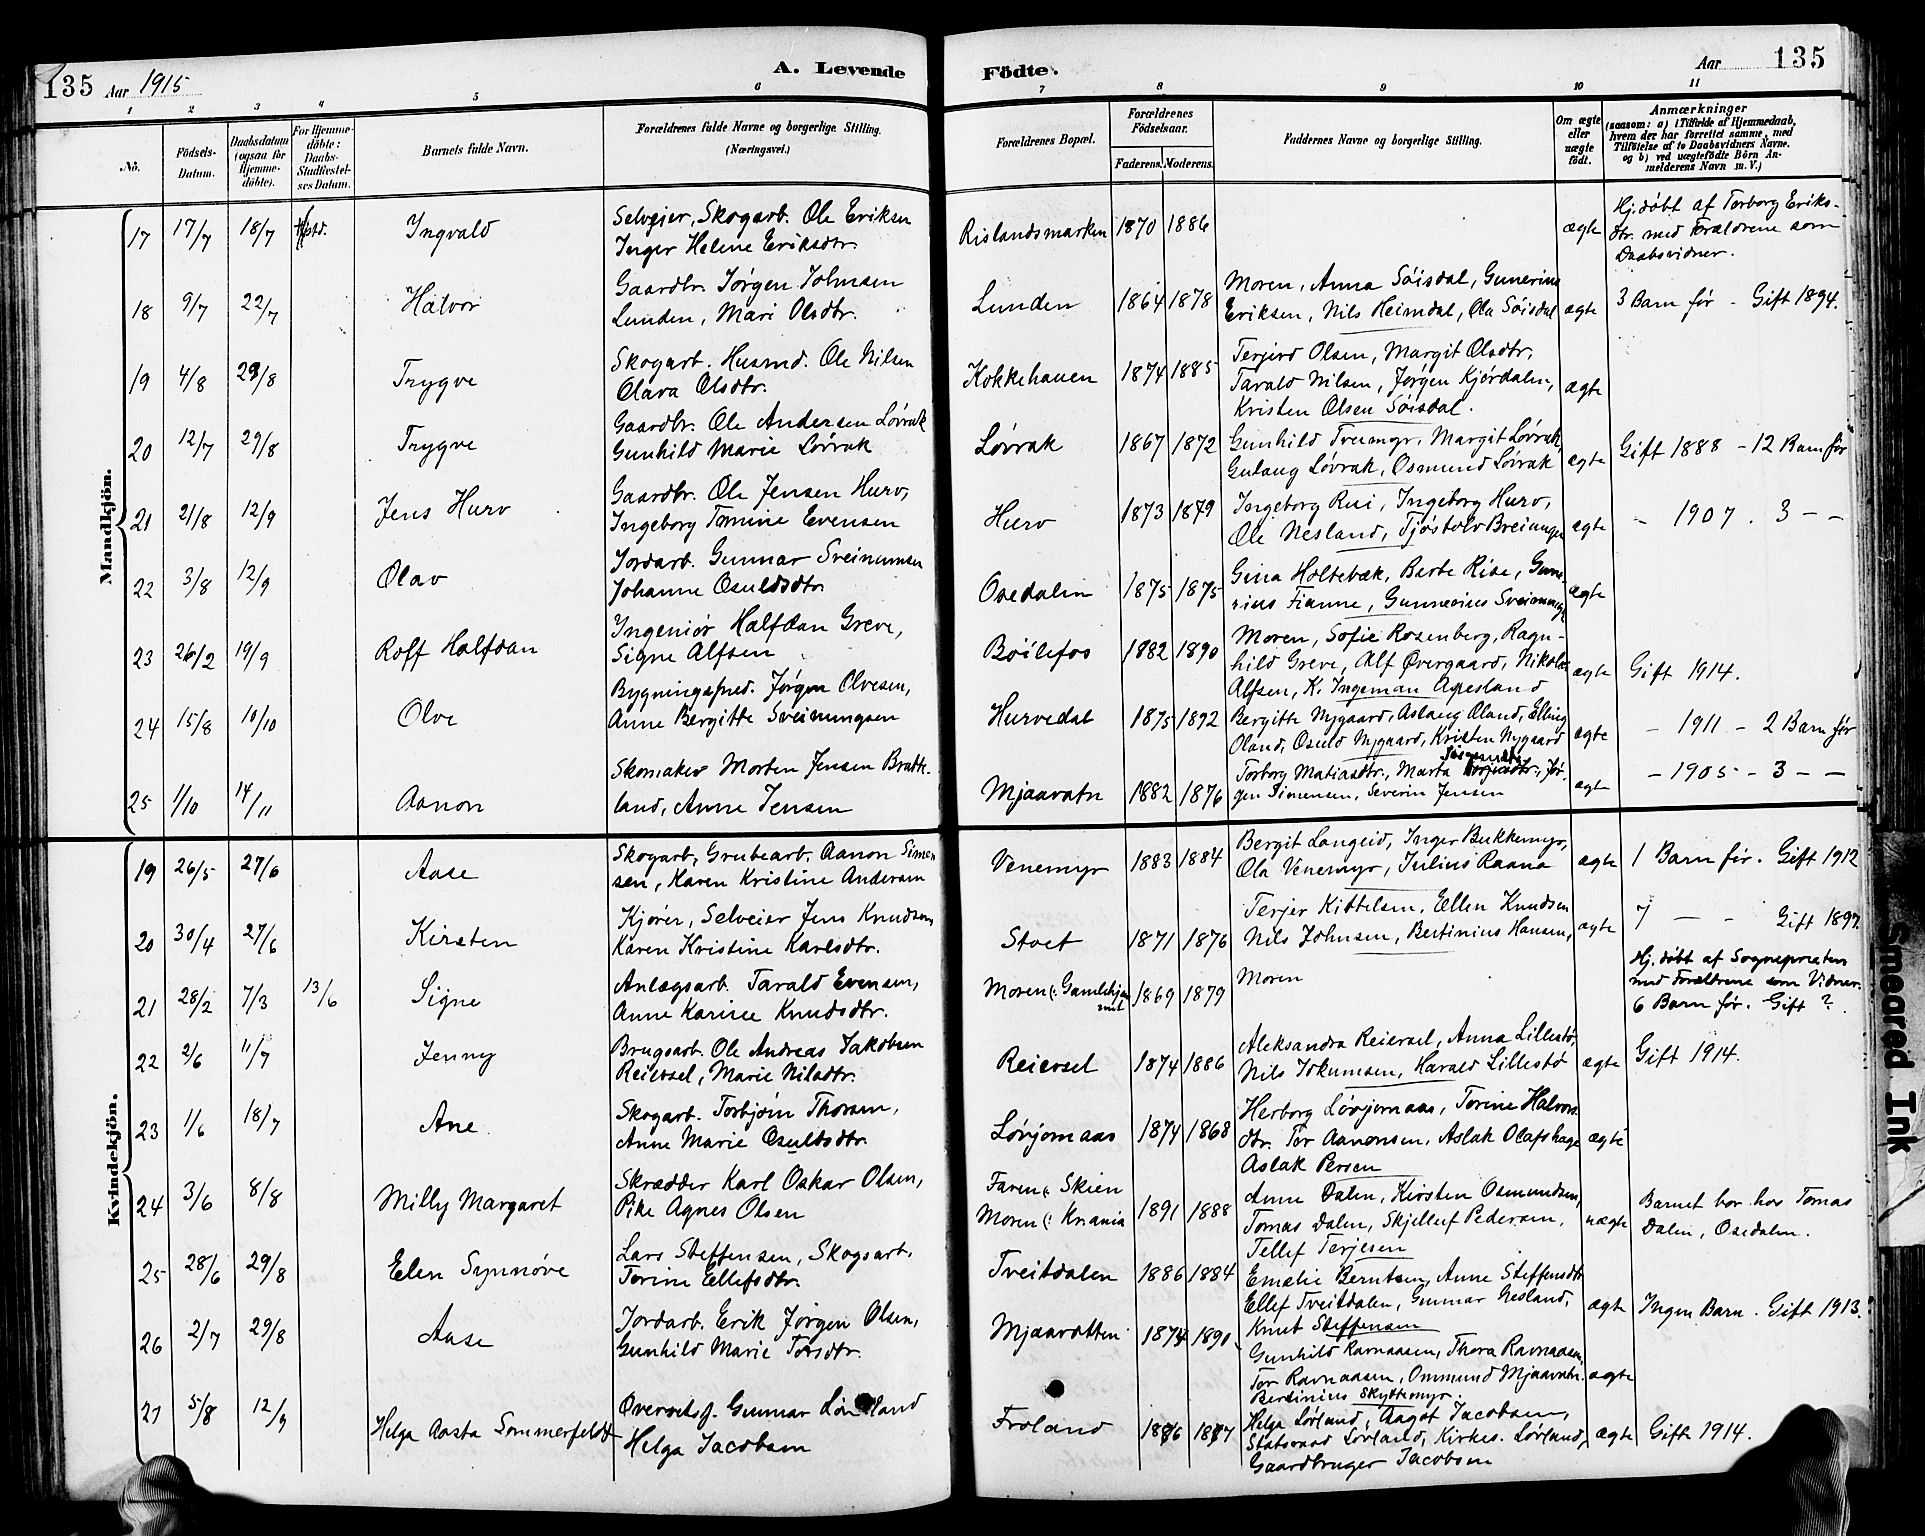 135 Aar 1915 A. Levende Födte. Aar 135
1 2 3 4 5 6 7 8 9 10 11
No. Födsels-Datum. Daabsdatum (ogsaa for Hjemme-döbte). For Hjemme-döbte: Daabs-Stadfæstel-ses Datum. Barnets fulde Navn. Forældrenes fulde Navne og borgerlige Stilling. (Næringsvei.) Forældrenes Bopæl. Forældrenes Födselsaar. Faderens. Moderens. Faddernes Navne og borgerlige Stilling. Om ægte eller uægte födt. Anmærkninger (saasom: a) i Tilfælde af Hjemmedaab, hvem der har forrettet samme, med Tilföielse af to Daabsvidners Navne, og b) ved uægtefödte Börn An-melderens Navn m. V.)
Mandkjön.
17 17/7 18/7 Ingvald Selveier, Skogarb. Ole Eriksen
Inger Helene Eriksdtr. Rislandsmarken 1870 1886 ægte Hj.døbt af Torborg Eriks-
dtr. med Forældrene som
Daabsvidner.
18 9/7 22/7 Halvor Gaardbr. Jørgen Johnsen
Lunden, Mari Olsdtr. Lunden 1864 1878 Moren, Anna Søisdal, Gunerius
Eriksen, Nils Heimdal, Ola Søisdal ægte 3 Barn før - Gift 1894.
19 4/8 29/8 Trygve Skogarb. Husmd. Ole Nilsen
Olava Olsdtr. Kokkehauen 1874 1885 Terjerd Olsen, Margit Olsdtr,
Tarald Nilsen, Jørgen Kjørdalen,
Kristen Olsen Søisdal. ægte
20 12/7 29/8 Trygve Gaardbr. Ole Andersen Løvrak
Gunhild Marie Løvrak Løvrak 1867 1872 Gunhild Tveimyr, Margit Løvrak,
Gulaug Løvrak, Osmund Løvrak ægte Gift 1888 - 12 Barn før
21 21/8 12/9 Jens Hurv Gaardbr. Ole Jensen Hurv,
Ingeborg Tomine Evensen Hurv 1873 1879 Ingeborg Risi, Ingeborg Hurv,
Ole Nesland, Tjøstolv Breiungen ægte - 1907. 3 - -
22 3/8 12/9 Olav Jordarb. Gunnar Sveinumsen
Johanne Osuldsdtr. Osedalen 1875 1875 Gina Holtebæk, Barbe Rise, Gune-
rius Fianne, Gunnerius Sveinungs. ægte
23 26/2 19/9 Rolf Halfdan Ingeniør Halfdan Greve,
Signe Alfsen Bøilefos 1882 1890 Moren, Sofie Rosenberg, Ragn-
hild Greve, Alf Øvergaard, Nikolai
Alfsen, K. Ingeman Agesland ægte Gift 1914.
24 15/8 10/10 Olve Bygningssnd. Jørgen Olvesen,
Anne Bergitte Sveinungsen Hurvedal 1875 1892 Bergitte Nygaard, Aslaug Oland, Elling
Oland, Osuld Nygaard, Kristen Nygaard ægte - 1911 - 2 Barn før
25 1/10 14/11 Aanon Skomaker Morten Jensen Bratte-
land, Anne Jensen Mjaavatn 1882 1876 Torborg Matiasdtr., Marta Jør-
gen Simensen, Severin Jensen ægte - 1905 - 3 - -
Kvindekjön.
19 26/5 27/6 Aase Skogarb, Grubearb. Aanon Simen
sen, Karen Kristine Andersen Venemyr 1883 1884 Bergit Langeid, Inger Bukkemyr,
Ola Venemyr, Julius Raana ægte 1 Barn før. Gift 1912
20 30/4 27/6 Kirsten Kjører, Selveier Jens Knudsen
Karen Kristine Karlsdtr. Stoet 1871 1876 Terjer Kittelsen, Ellen Knudsen
Nils Johnsen, Bertinius Hansen, ægte 7 - - Gift 1897.
21 28/2 7/3 13/6 Signe Anlægsarb. Tarald Evensen,
Anne Karine Knudsdtr. Moren (: 1869 1879 Moren Hj.døbt af Sognepresten
med Forældrene som Vidner.
6 Barn før. Gift ?
22 2/6 11/7 Jenny Brugsarb. Ole Andreas Jakobsen
Reiersel, Marie Nilsdtr. Reiersel 1874 1886 Aleksandra Reiersel, Anna Lillestø,
Nils Jokumsen, Harald Lillestø ægte Gift 1914.
23 1/6 18/7 Ane Skogarb. Torbjørn Thorsen,
Anne Marie Osuldsdtr. Løvjomaas 1874 1868 Herborg Løvjomaas, Torine Halvors
dtr. Tor Aanonsen, Aslak Olafshage
Aslak Persen ægte
24 3/6 8/8 Milly Margaret Skrædder Karl Oskar Olsen,
Pike Agnes Olsen Faren (: Skien
Moren (: Krania 1891 1888 Anne Dalen, Kirsten Osmundsen,
Tomas Dalen, Skjelluf Pedersen,
Tellef Terjesen uægte Barnet bor hos Tomas
Dalen, Osedalen.
25 28/6 29/8 Elen Synnøve Lars Steffensen, Skogsarb.
Torine Ellefsdtr. Tveitdalen 1886 1884 Emelie Berntsen, Anne Steffensdtr
Ellef Tveitdalen, Gunnar Nesland,
Knut Steffensen ægte Ingen Barn. Gift 1913.
26 2/7 29/8 Aase Jordarb. Erik Jørgen Olsen,
Gunhild Marie Torsdtr. Mjaavatten 1874 1890 Gunhild Ravnaasen, Thora Ravnaasen,
Tor Ravnaasen, Ommund Mjaavatn.
Berdinius Skyttemyr. ægte
27 5/8 12/9 Helga Aasta Sommerfeldt Overretssf. Gunnar
Helga Jacobsen Froland 1886 1887 Helga Lørland, Aagot Jacobsen,
Statsraad Løvland, Kirkes. Løvland,
Gaardbruger Jacobsen ægte Gift 1914.
Smeared Ink